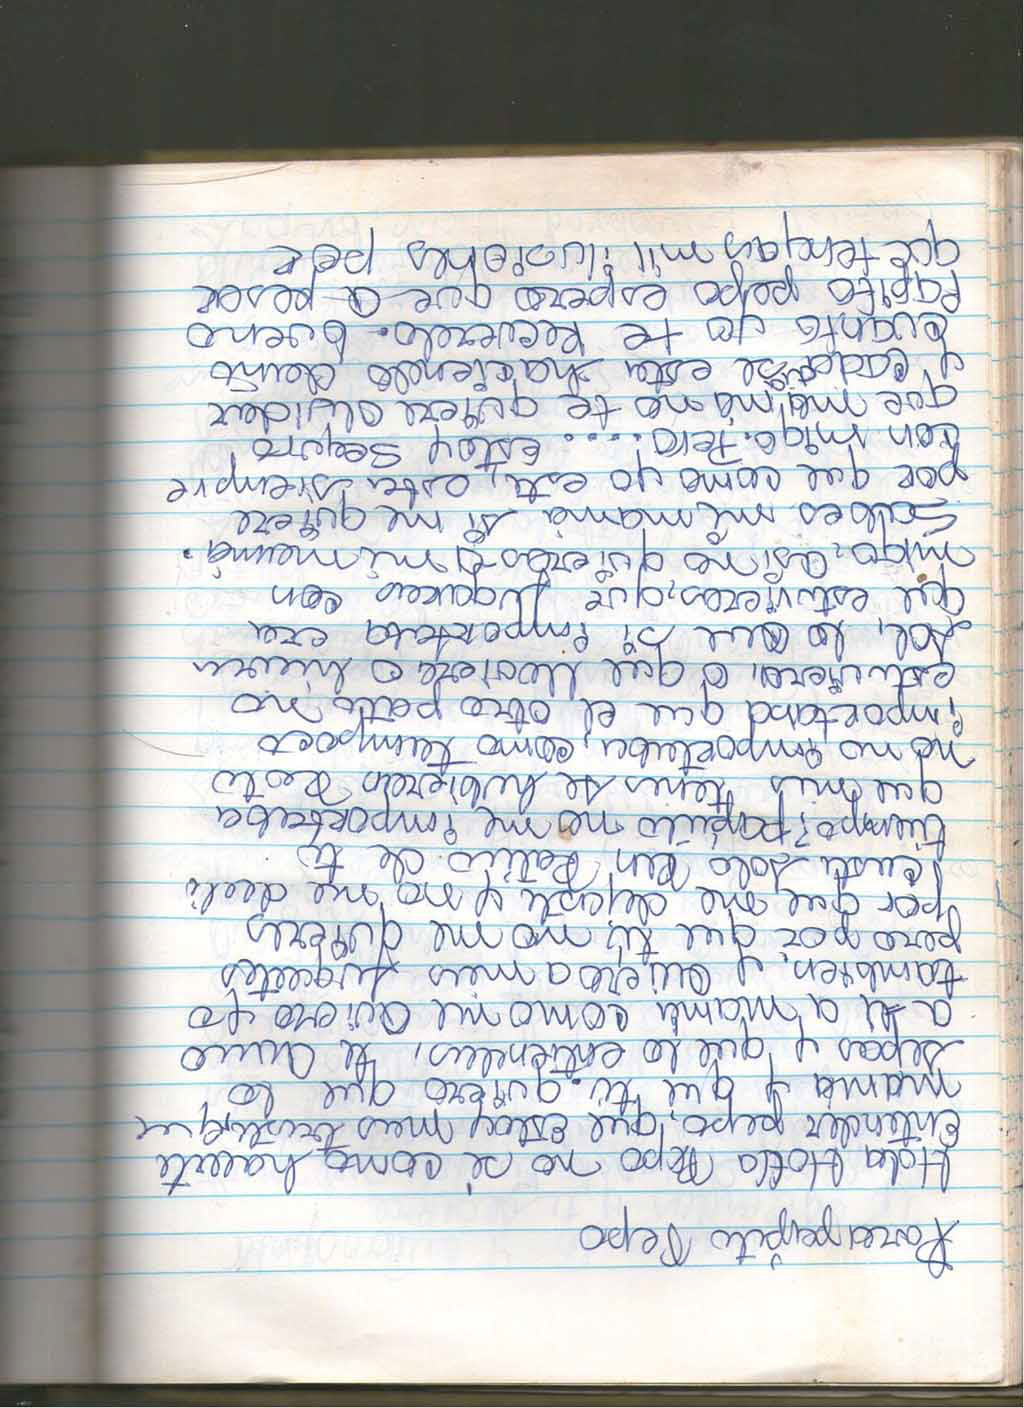 Para papito Pepo
Hola Holla Pepo no sé como hacerte
entender pepo, que estoy mas triste que
mamá y que tú. quiero que lo
sepas y que lo entiendas, te quiero
a ti a mamá como me quiero yo
tambien, y quiero a mis juguetes
pero por que tú no me quieres
por que me dejaste y no me dedi
caste solo un Ratito de tú
tiempo? papito no me importaba
que mis tenis se hubieran Roto
no no importaba, como tampoco
importand que el otro patio no
estuviera, o que lloviera o hiciera
sol, lo que si importaba era
que estuvieras, que jugaras con
migo, asi no quieras a mi mamá.
Sabes mi mamá si me quiere
por que como yo está, esta siempre
con migo. Pero .... Estoy seguro
que mamá no te quiere olvidar
y cada se esta haciendo daño
cuanto yo te Recuerdo. bueno
Papito pepo espero que a pesar
que tengas mil ilusiones per